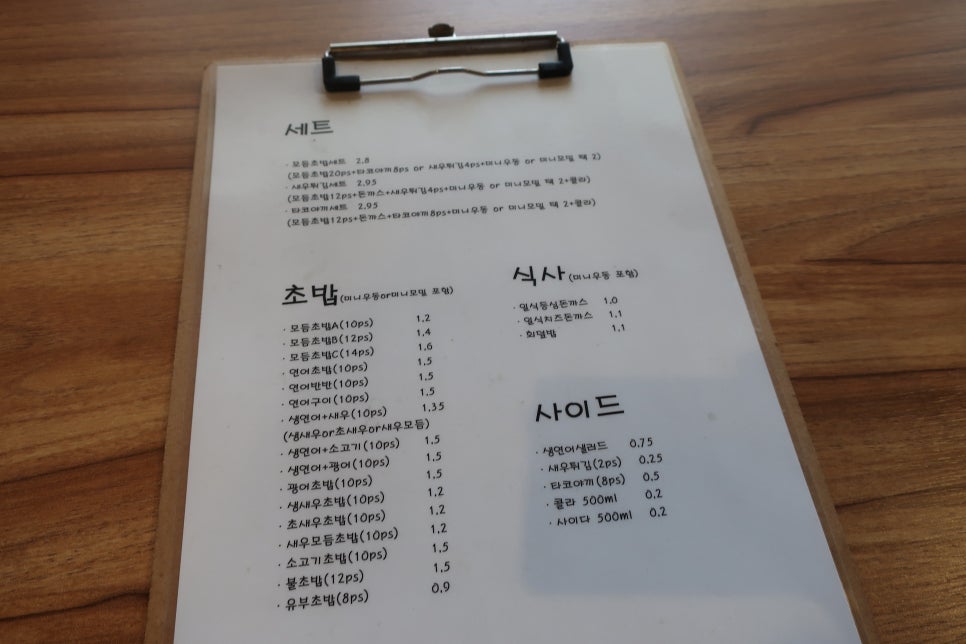 세트
· 모듬초밥세트 2.8
(모듬초밥20ps+타코야끼8ps or 새우튀김4ps+미니우동 or 미니모밀 택 2)
· 새우튀김세트 2.95
(모듬초밥12ps+돈까스+새우튀김4ps+미니우동 or 미니모밀 택 2+콜라)
· 타코야끼세트 2.95
(모듬초밥12ps+돈까스+타코야끼8ps+미니우동 or 미니모밀 택 2+콜라)
초밥(미니우동or미니모밀 포함)
· 모듬초밥A(10ps) 1.2
· 모듬초밥B(12ps) 1.4
· 모듬초밥C(14ps) 1.6
· 연어초밥(10ps) 1.5
· 연어반반(10ps) 1.5
· 연어구이(10ps) 1.5
· 생연어+새우(10ps) 1.35
(생새우or초새우or새우모듬)
· 생연어+소고기(10ps) 1.5
· 생연어+광어(10ps) 1.5
· 광어초밥(10ps) 1.5
· 생새우초밥(10ps) 1.2
· 초새우초밥(10ps) 1.2
· 새우모듬초밥(10ps) 1.2
· 소고기초밥(10ps) 1.5
· 불초밥(12ps) 1.5
· 유부초밥(8ps) 0.9
식사(미니우동 포함)
· 일식등심돈까스 1.0
· 일식치즈돈까스 1.1
· 회덮밥 1.1
사이드
· 생연어샐러드 0.75
· 새우튀김(2ps) 0.25
· 타코야끼(8ps) 0.5
· 콜라 500ml 0.2
· 사이다 500ml 0.2